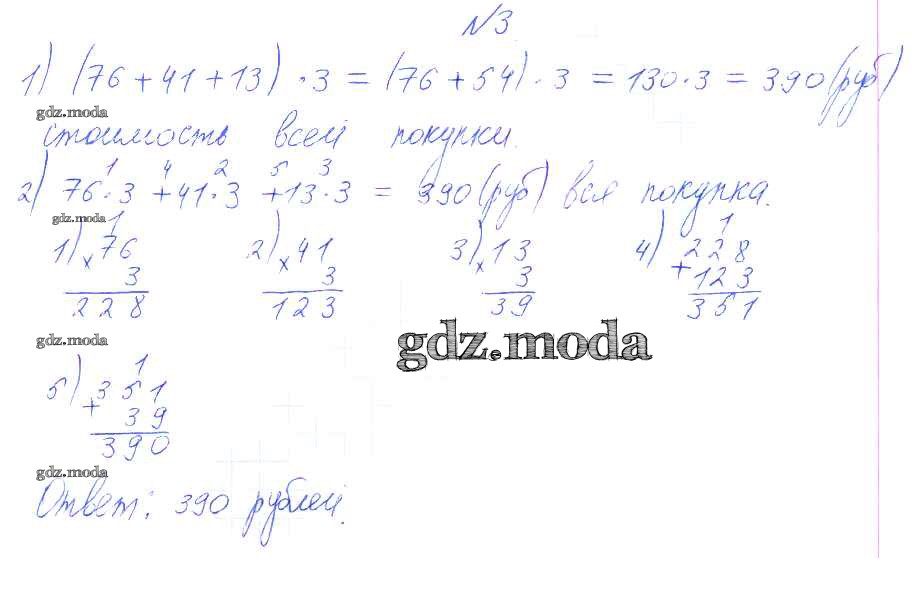 №3
1) (76 + 41 + 13) · 3 = (76 + 54) · 3 = 130 · 3 = 390 (руб)
gdz.moda
стоимость всей покупки.
1 4 2 5 3
2) 76 · 3 + 41 · 3 + 13 · 3 = 390 (руб) вся покупка.
gdz.moda
1) 1
× 76
3
228
2) × 41
3
123
3) × 13
3
39
4) 1
+ 228
123
351
gdz.moda
gdz.moda
5) 1
+ 351
39
390
gdz.moda
Ответ: 390 рублей.